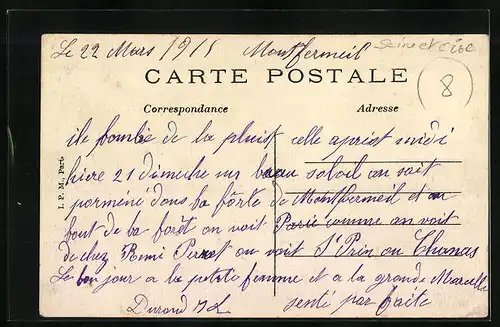 Le 22 Mars 1915 Montfermeil Seine et Oise
CARTE POSTALE
8
Correspondance Adresse
I. P. M., Paris
ile tombée de la pluis celle apriet midi
hiere 21 dimeche un beau soloil on sait
porméné dans la forte de Montfermeil et au
bout de la forêt on voit Parie comme on voit
de chez Remi Perret on voit St Prin ou Chanas
Le bon jour a la petite femme et a la grande Marcelle
Durand senté par faite